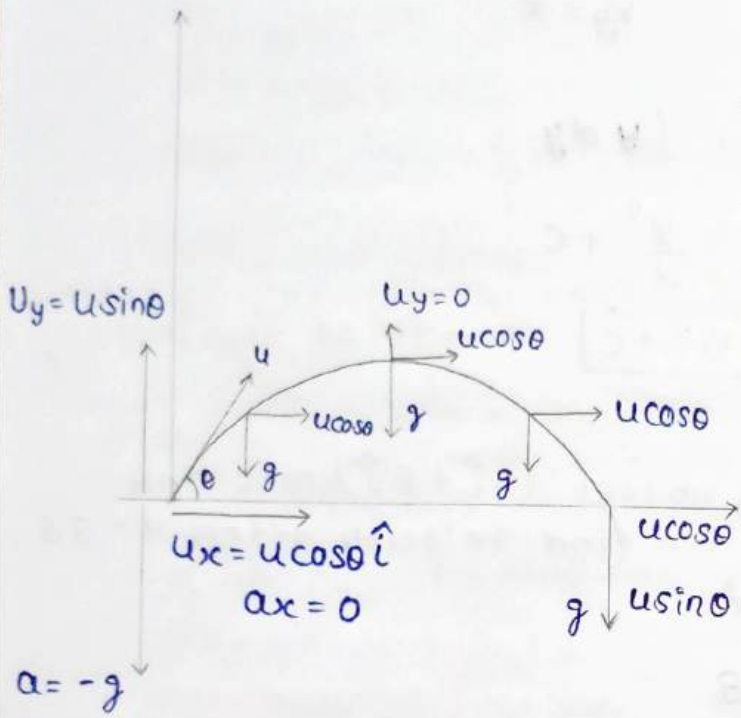 Uy = usinθ
uy = 0
ucosθ
u
ucosθ
g
ucosθ
g
θ
g
ux = ucosθ î
ucosθ
ax = 0
g
usinθ
a = -g